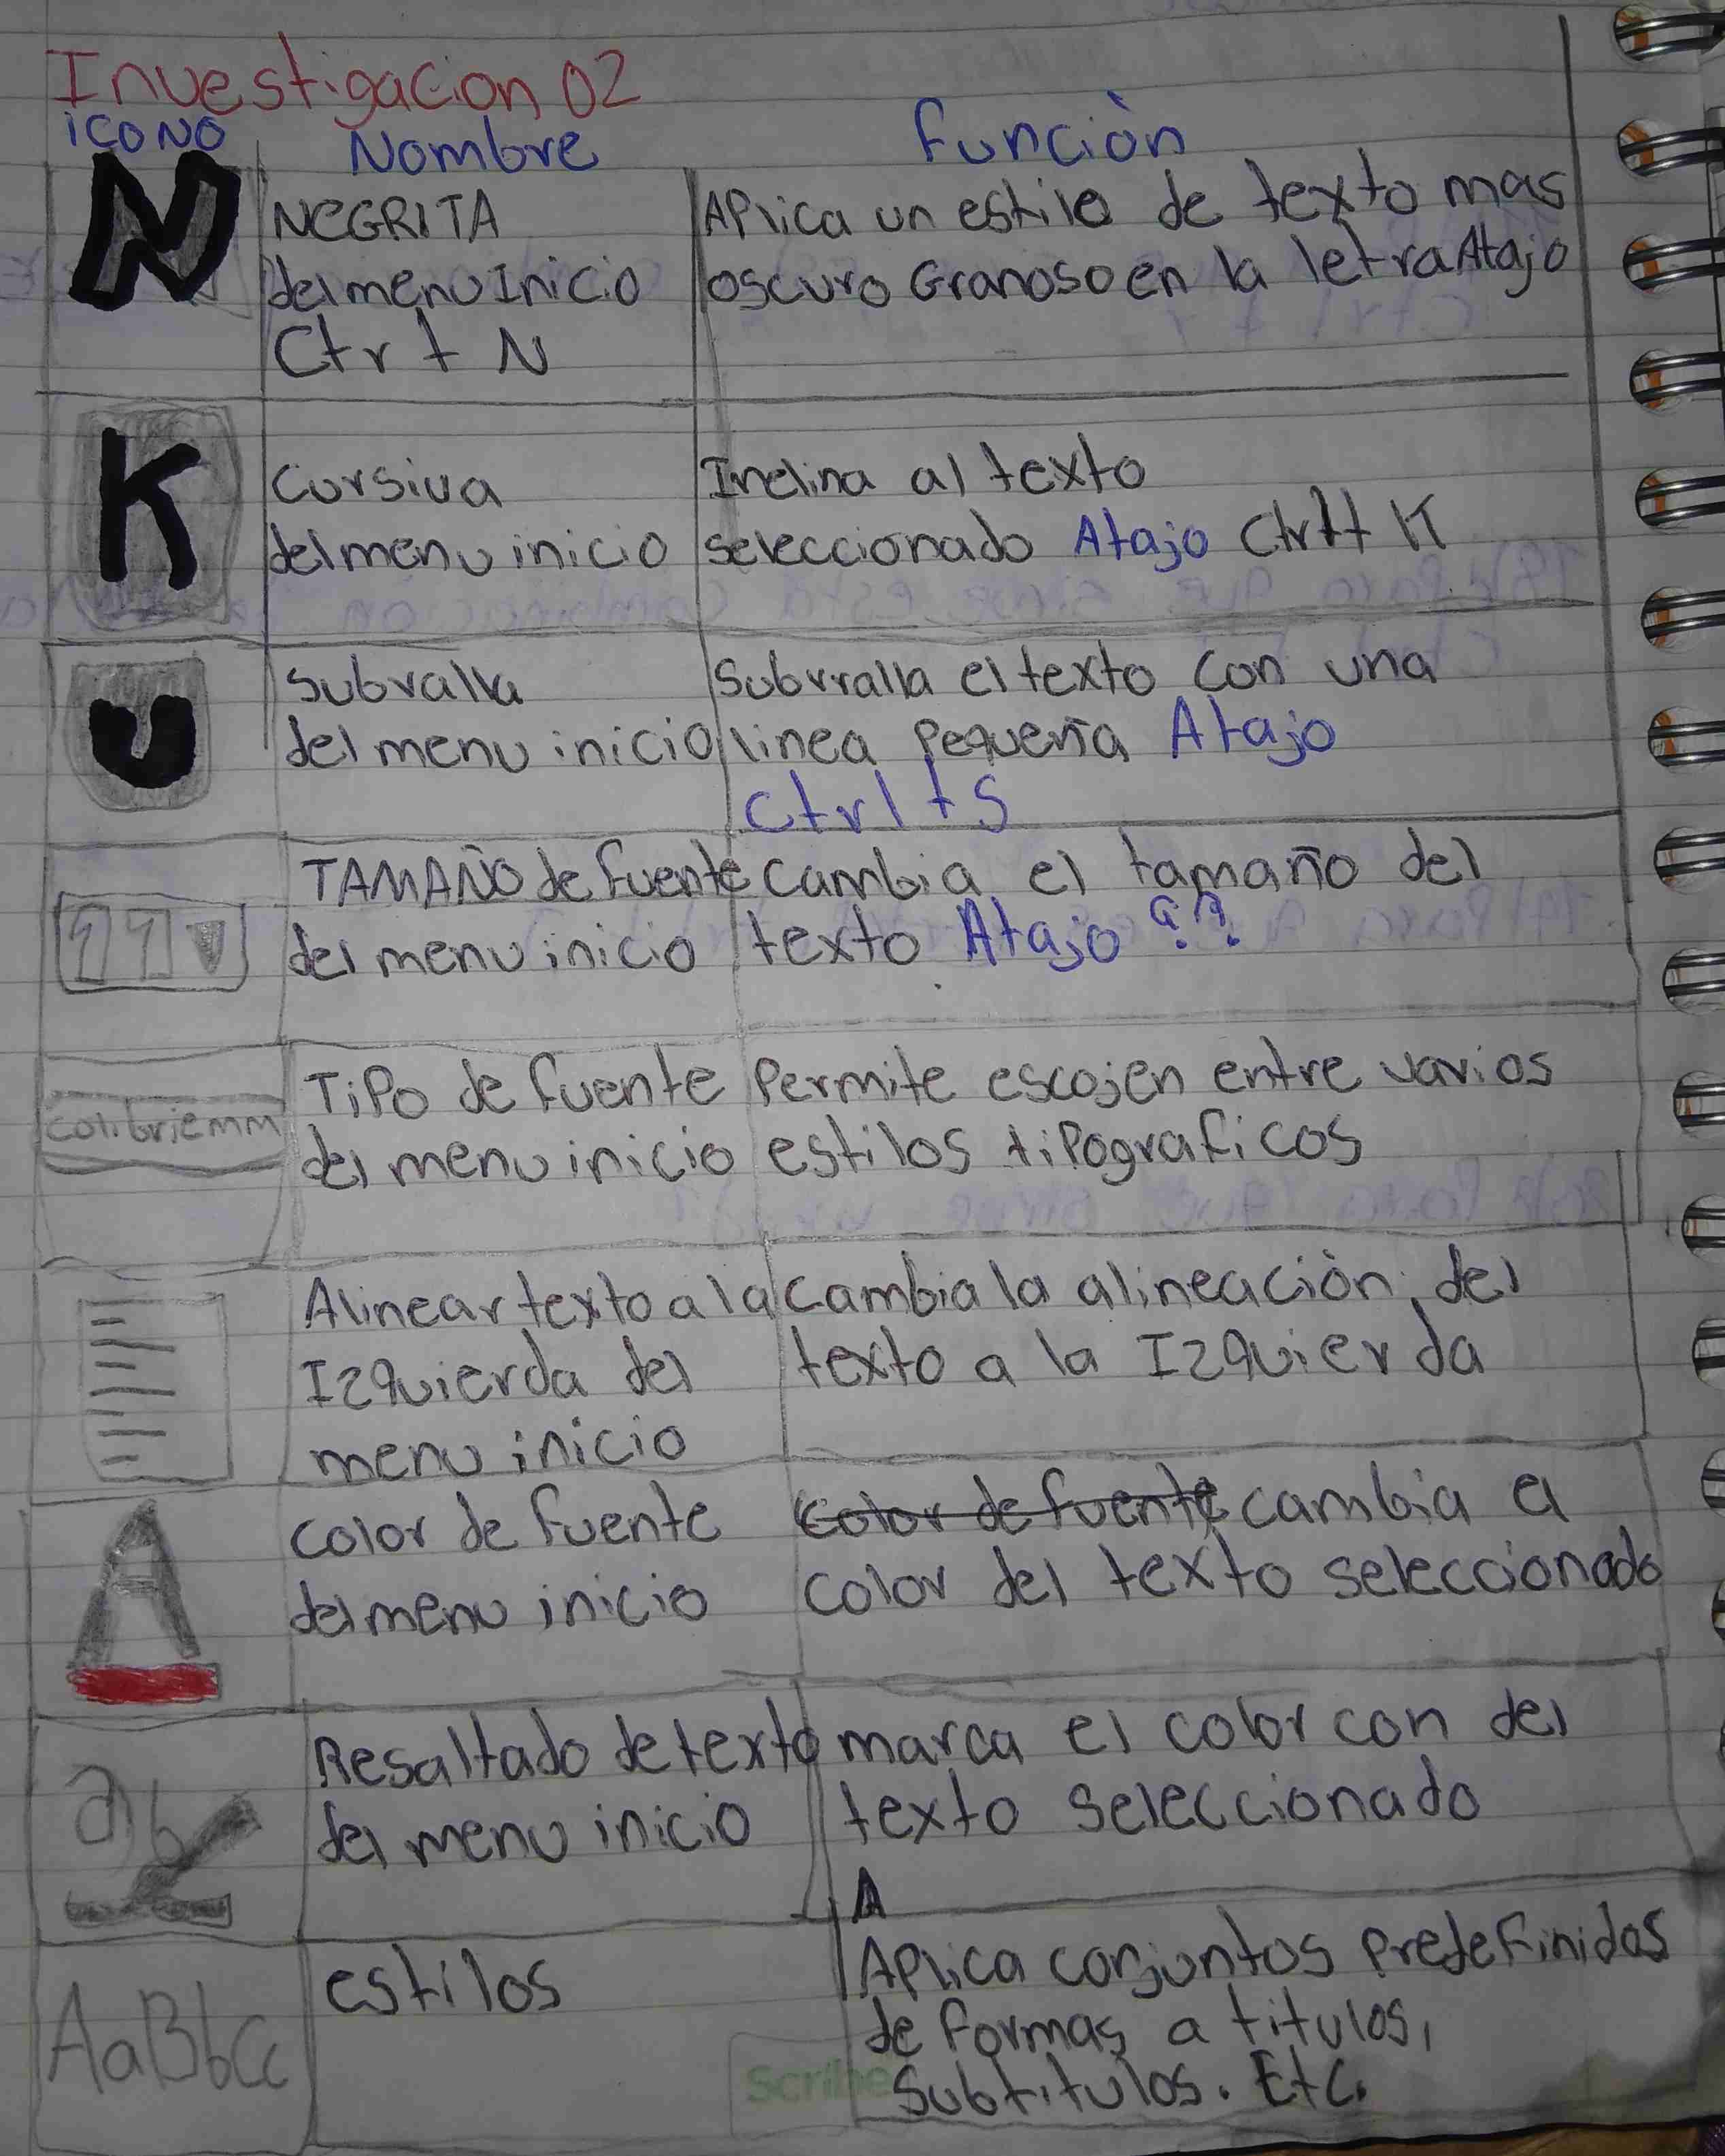 Investigacion 02
icono Nombre Funciòn
N NEGRITA Aplica un estilo de texto mas
del menu Inicio oscuro Granoso en la letra Atajo
Ctr + N
K Cursiva Inclina al texto
del menu inicio seleccionado Atajo Ctrl+ K
U Subralla Subrralla el texto con una
del menu inicio linea pequeña Atajo
Ctrl + S
TAMAÑO de fuente cambia el tamaño del
11 del menu inicio texto Atajo ??
Tipo de fuente Permite escojen entre varios
colibriemm del menu inicio estilos tipograficos
Alinear texto a la cambia la alineaciòn del
Izquierda del texto a la Izquierda
menu inicio
color de fuente color de fuente cambia el
A del menu inicio color del texto seleccionado
Resaltado de texto marca el color con del
ab del menu inicio texto seleccionado
A
estilos Aplica conjuntos predefinidos
AaBbCc de formas a titulos,
Scribe subtitulos. Etc.